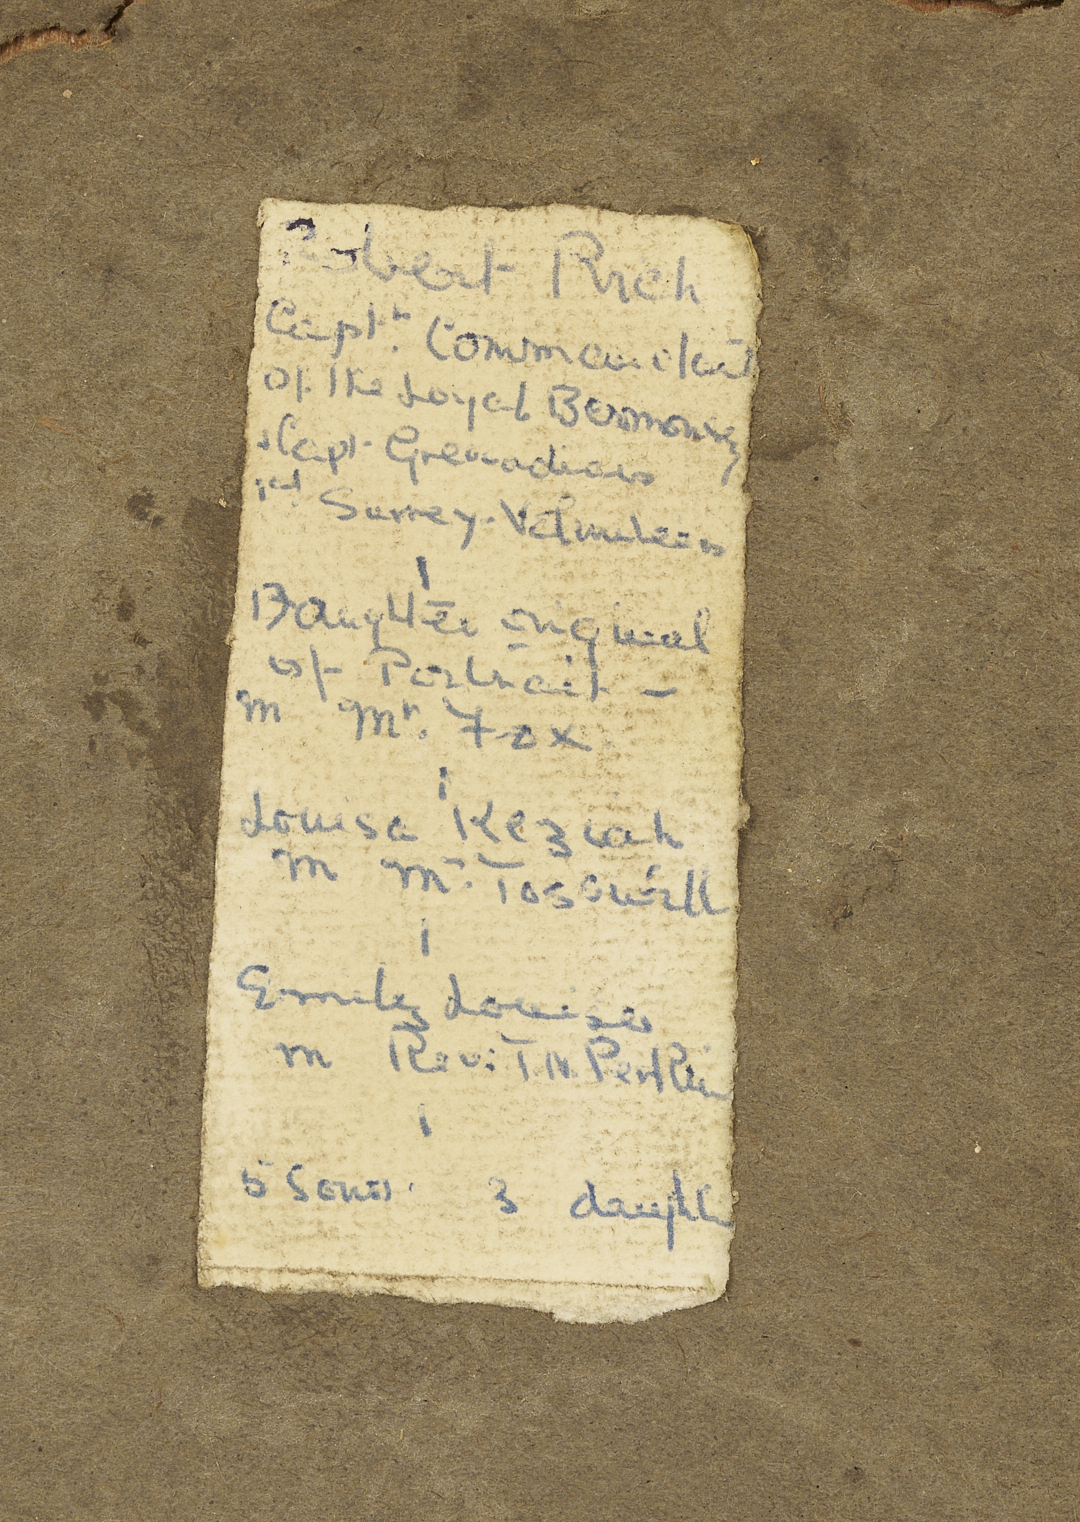 Robert Rich
Captn. Commandant
of the Loyal Bermondsey
& Capt. Grenadiers
1st Surrey. Volunteers
Daughter original
of Portrait –
m Mr. Fox
Louisa Keziah
m Mr. Toswill
Emily Louisa
m Rev: T N Perkin
5 Sons. 3 daught